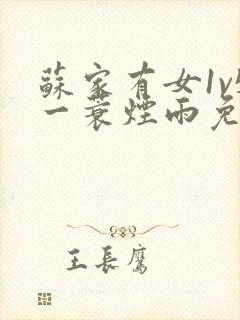 蘇家有女1v
一蓑煙雨免
王長鷹